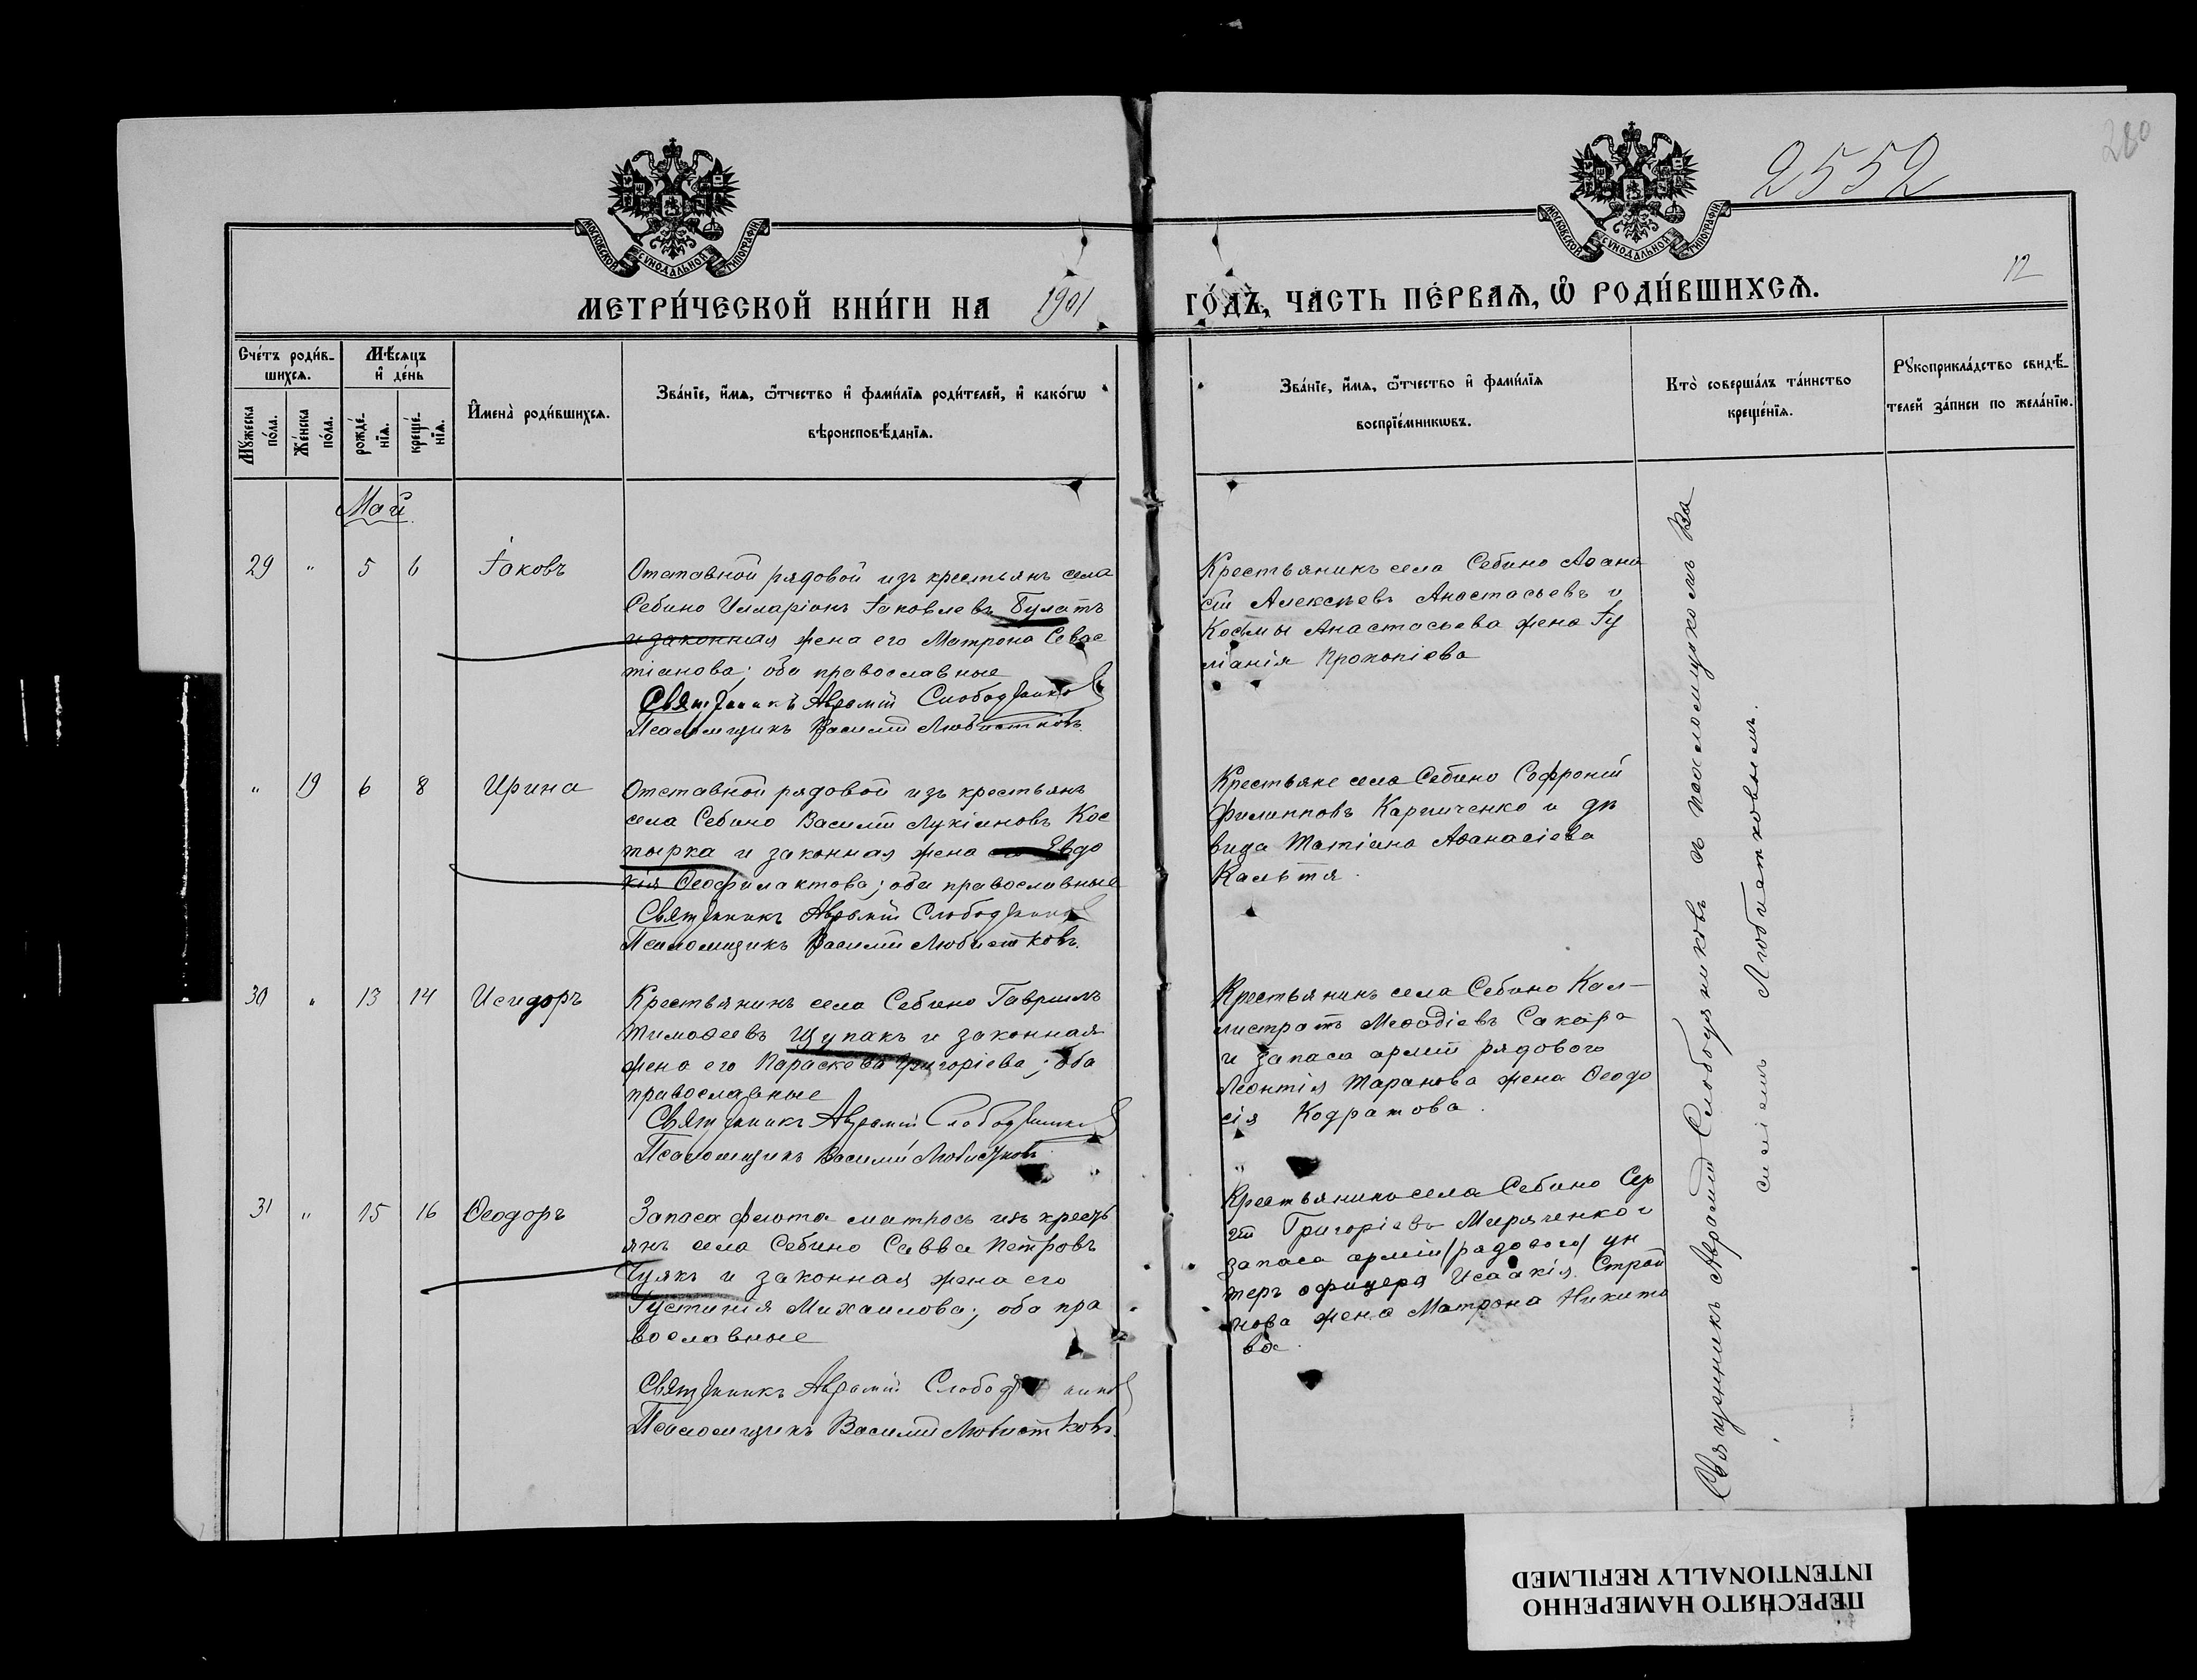 280
2552
12
МОСКОВСКОЙ СѴНОДАЛЬНОЙ ТИПОГРАФІИ
МОСКОВСКОЙ СѴНОДАЛЬНОЙ ТИПОГРАФІИ
МЕТРИ́ЧЕСКОЙ КНИ́ГИ НА 1901 ГО́ДЪ, ЧА́СТЬ ПЕ́РВАѦ, Ѽ РОДИ́ВШИХСѦ.
Сче́тъ роди́в-
шихсѧ.
Мꙋ́жеска
по́ла.
Же́нска
по́ла.
Мѣ́сѧцъ
и҆ де́нь
рожде́-
нїѧ.
креще́-
нїѧ.
И҆мена̀ роди́вшихсѧ.
Зва́нїе, и҆́мѧ, ѻ҆́тчество и҆ фами́лїѧ роди́телей, и҆ како́гѡ
вѣроисповѣ́данїѧ.
Зва́нїе, и҆́мѧ, ѻ҆́тчество и҆ фами́лїѧ
воспрїе́мникѡвъ.
Кто̀ соверша́лъ та́инство
креще́нїѧ.
Рꙋкоприкла́дство свидѣ́-
телей за́писи по жела́нїю.
Май
29 " 5 6 Іаковъ
Отставной рядовой изъ крестьянъ села
Себино Илларіонъ Іаковлевъ Булатъ
и законная жена его Матрона Севас
тіанова; оба православные
Священникъ Аврамій Слободяниковъ
Псаломщикъ Василій Любистковъ.
Крестьянинъ села Себино Аѳана
сій Алексѣевъ Анастасьевъ и
Косьмы Анастасьева жена Іу
ліанія Прокопіева
" 19 6 8 Ирина
Отставной рядовой изъ крестьянъ
села Себино Василій Лукіановъ Кос
тырка и законная жена Евдо
кія Ѳеофилактова; оба православные
Священникъ Аврамій Слободяниковъ
Псаломщикъ Василій Любистковъ.
Крестьяне села Себино Софроній
Филипповъ Карпиченко и дѣ
вица Татіана Аѳанасіева
30 " 13 14 Исидоръ
Крестьянинъ села Себино Гавріилъ
Тимоѳеевъ Щупакъ и законная
жена его Параскева Григоріева; оба
православные
Священникъ Аврамій Слободяниковъ
Псаломщикъ Василій Любистковъ
Крестьянинъ села Себино Кал-
листратъ Меѳодіевъ Сакара
и запаса арміи рядового
Леонтія Таранова жена Ѳеодо
сія Кодратова.
31 " 15 16 Ѳеодоръ
Запаса флота матросъ изъ кресть
янъ села Себино Савва Петровъ
Чуякъ и законная жена его
Іустинія Михаилова; оба пра
вославные
Священникъ Аврамій Слободяниковъ
Псаломщикъ Василій Любистковъ.
Крестьянинъ села Себино Сер
гій Григоріевъ Миряченко и
запаса арміи /рядового/ ун
теръ офицера Исаакія Строй
нова жена Матрона Никито
ва.
Священникъ Аврамій Слободяниковъ съ псаломщикомъ Ва
силіемъ Любистковымъ.
ПЕРЕСНЯТО НАМЕРЕННО
INTENTIONALLY REFILMED